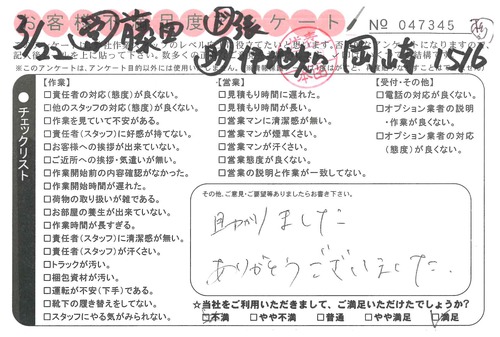 お客様不満足度アンケート
No 047345
3/22 藤田
岡山市 1516
※このアンケートは、アンケート目的以外には使用いたしません。
チェックリスト
【作業】
□責任者の対応(態度)が良くない。
□他のスタッフの対応(態度)が良くない。
□作業を見ていて不安がある。
□責任者(スタッフ)に好感が持てない。
□お客様への挨拶が出来ていない。
□ご近所への挨拶・気遣いが無い。
□作業開始前の内容確認がなかった。
□作業開始時間が遅れた。
□荷物の取り扱いが雑である。
□お部屋の養生が出来ていない。
□作業時間が長すぎる。
□責任者(スタッフ)に清潔感が無い。
□責任者(スタッフ)が汗くさい。
□トラックが汚い。
□梱包資材が汚い。
□運転が不安(下手)である。
□靴下の履き替えをしてない。
□スタッフにやる気がみられない。
【営業】
□見積もり時間に遅れた。
□見積もり時間が長い。
□営業マンに清潔感が無い。
□営業マンが煙草くさい。
□営業マンが汗くさい。
□営業態度が良くない。
□営業の説明と作業が一致してない。
【受付・その他】
□電話の対応が良くない。
□オプション業者の説明・作業が良くない。
□オプション業者の対応(態度)が良くない。
その他、ご意見・ご要望等ありましたらお書き下さい。
助かりました
ありがとうございました。
☆当社をご利用いただきまして、ご満足いただけたでしょうか?
□不満 □やや不満 □普通 □やや満足 □満足